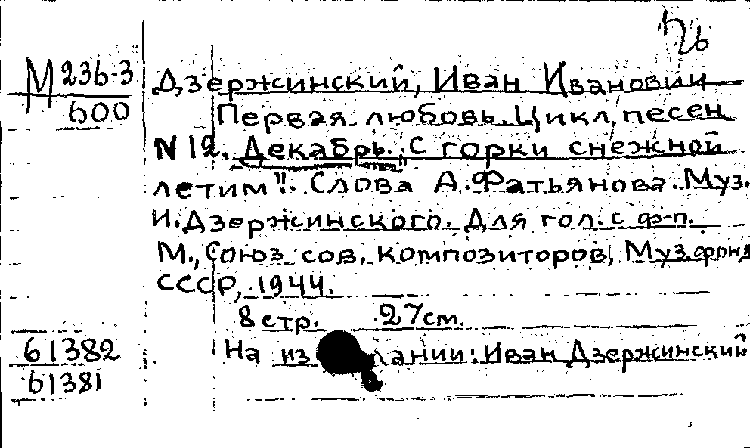 М 236-3
600
Дзержинский, Иван Иванович
Первая любовь. Цикл песен
N 12. Декабрь. „С горки снежной
летим". Слова А. Фатьянова. Муз.
И. Дзержинского. Для гол. с ф-п.
М., Союз сов. композиторов, Муз. фонд
СССР, 1944.
8 стр. 27 см.
61382
На из лании: Иван Дзержинский
61381